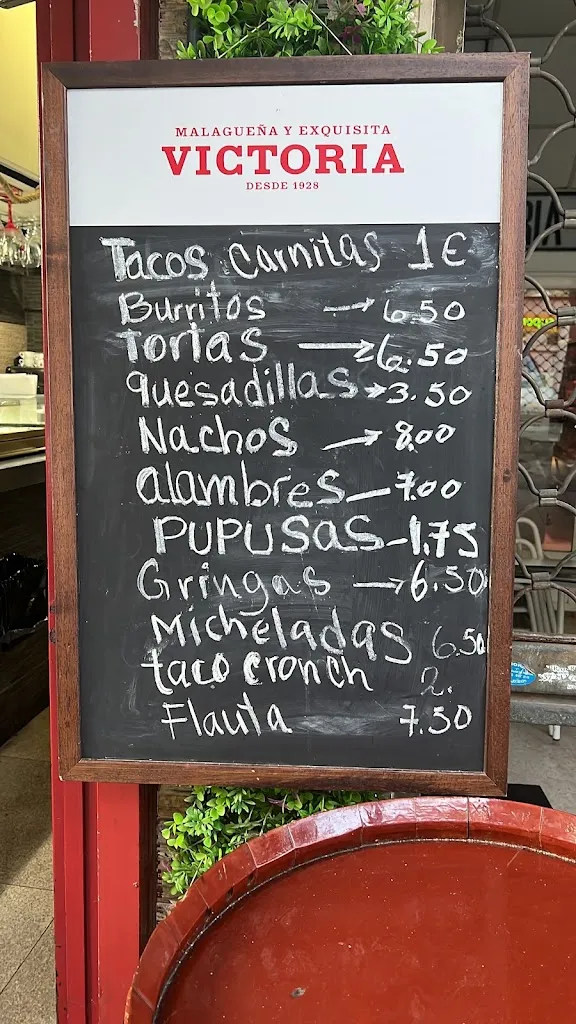 MALAGUEÑA Y EXQUISITA
VICTORIA
DESDE 1928
Tacos Carnitas 1€
Burritos → 6.50
Tortas → 6.50
quesadillas → 3.50
Nachos → 8.00
alambres — 7.00
PUPUSAS - 1.75
Gringas → 6.50
Micheladas 6.50
taco cronch 2.
Flauta 7.50